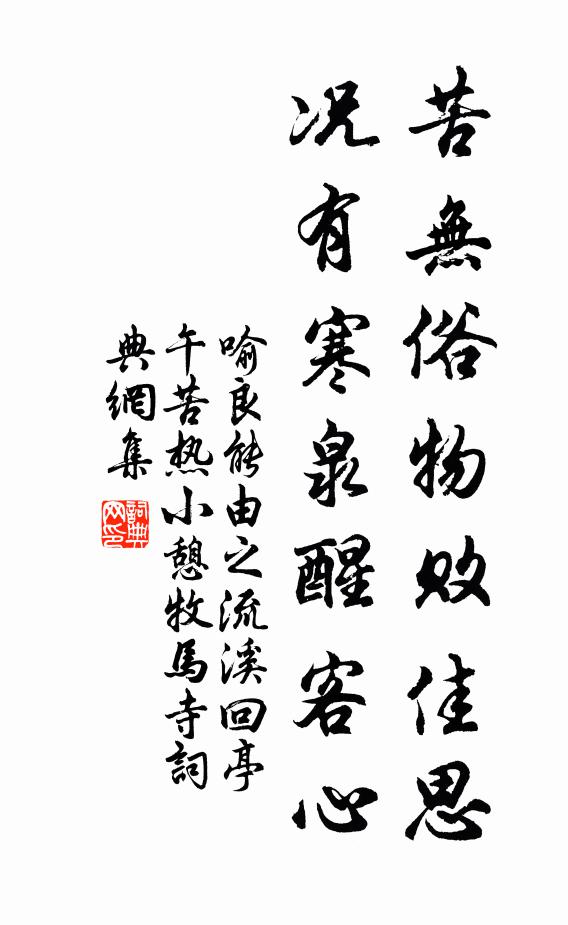 苦無俗物敗佳思
况有寒泉醒客心
喻良能由之流溪回亭
午苦热小憩牧馬寺詞
典網集
詞典網印